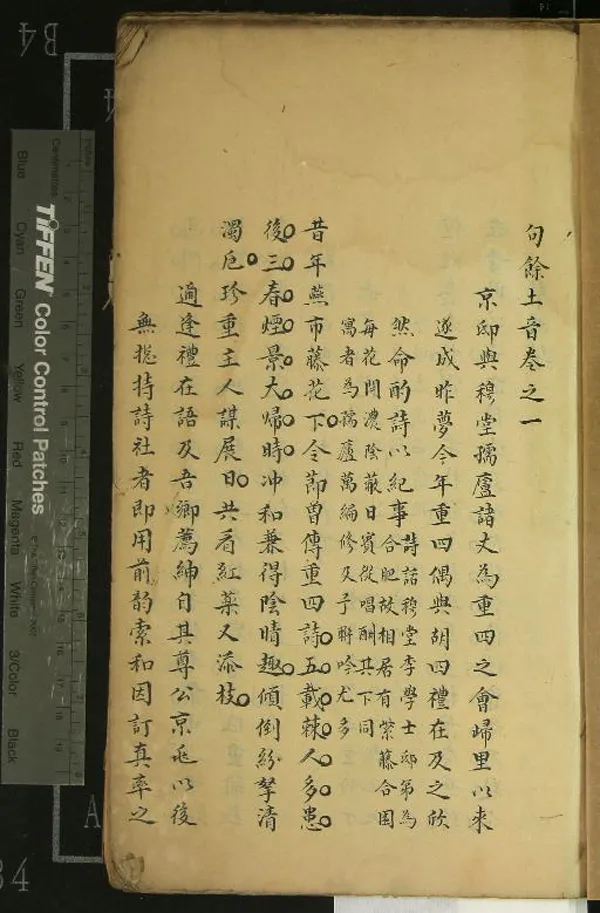 句餘土音卷之一
京邸與穆堂孺廬諸丈為重四之會歸里以來
遂成昨夢今年重四偶與胡四禮在及之欣
然命酌詩以紀事
詩話穆堂李學士邸第為
合肥故相居有紫藤合圍
每花開濃陰蔽日賓從唱酬其下同
寓者為孺廬萬編修及予聯吟尤多
昔年燕市藤花下令節曾傳重四詩五載棘人多患
後三春煙景大歸時冲和兼得陰晴趣傾倒紛拏清
濁卮珍重主人謀展日共看紅藥又添枝
適逢禮在語及吾鄉薦紳自其尊公京兆以後
無摠持詩社者即用前韵索和因訂真率之
B4
Inches
Centimetres
TIFFEN Color Control Patches
Blue
Cyan
Green
Yellow
Red
Magenta
White
3/Color
Black
A
34